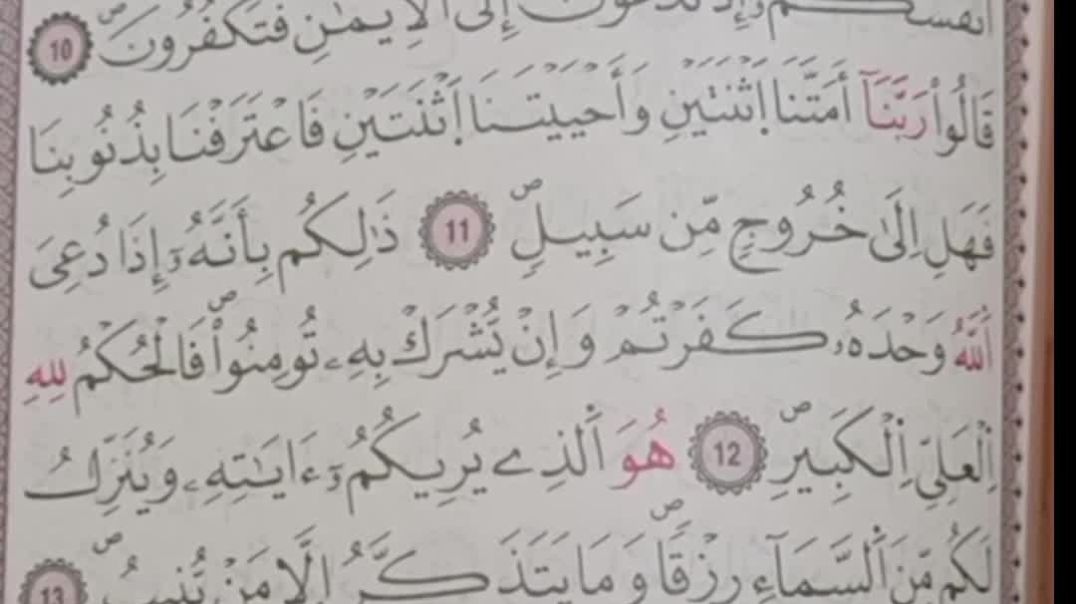 أَنفُسَكُمُۥٓ إِذْ تُدْعَوْنَ إِلَى اَ۬لِايمَٰنِ فَتَكْفُرُونَۖ 10
قَالُواْ رَبَّنَآ أَمَتَّنَا اَ۪ثْنَتَيْنِ وَأَحْيَيْتَنَا اَ۪ثْنَتَيْنِ فَاعْتَرَفْنَا بِذُنُوبِنَا
فَهَلِ اِلَىٰ خُرُوجٖ مِّن سَبِيلٖۖ 11 ذَٰلِكُم بِأَنَّهُۥٓ إِذَا دُعِيَ
اَ۬للَّهُ وَحْدَهُۥ كَفَرْتُمْ وَإِنْ يُّشْرَكْ بِهِۦ تُومِنُواْۖ فَالْحُكْمُ لِلهِ
اِ۬لْعَلِيِّ اِ۬لْكَبِيرِۖ 12 هُوَ اَ۬لذِے يُرِيكُمُۥٓ ءَايَٰتِهِۦ وَيُنَزِّلُ
لَكُم مِّنَ اَ۬لسَّمَآءِ رِزْقاٗۖ وَمَا يَتَذَكَّرُ إِلَّا مَنْ يُّنِيبُۖ 13